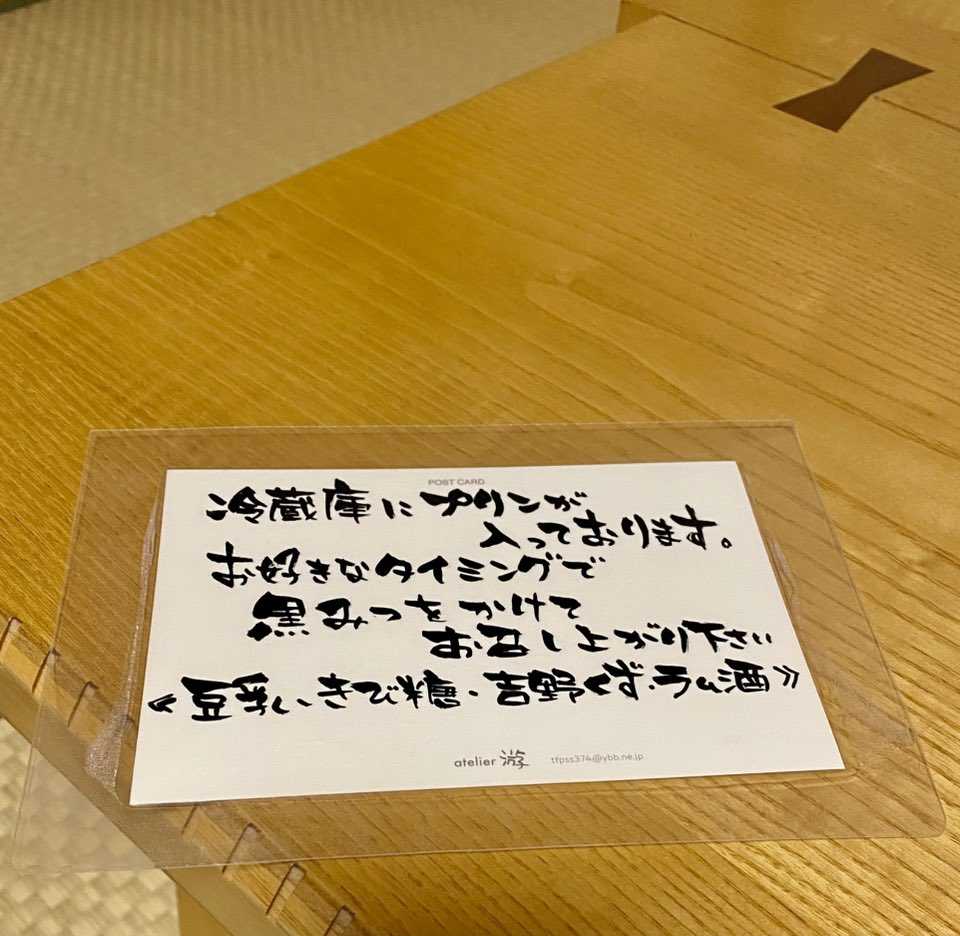 POST CARD
冷蔵庫にプリンが
入っております。
お好きなタイミングで
黒みつをかけて
お召し上がり下さい
《豆乳・きび糖・吉野くず・ラム酒》
atelier 游 tfpss374@ybb.ne.jp